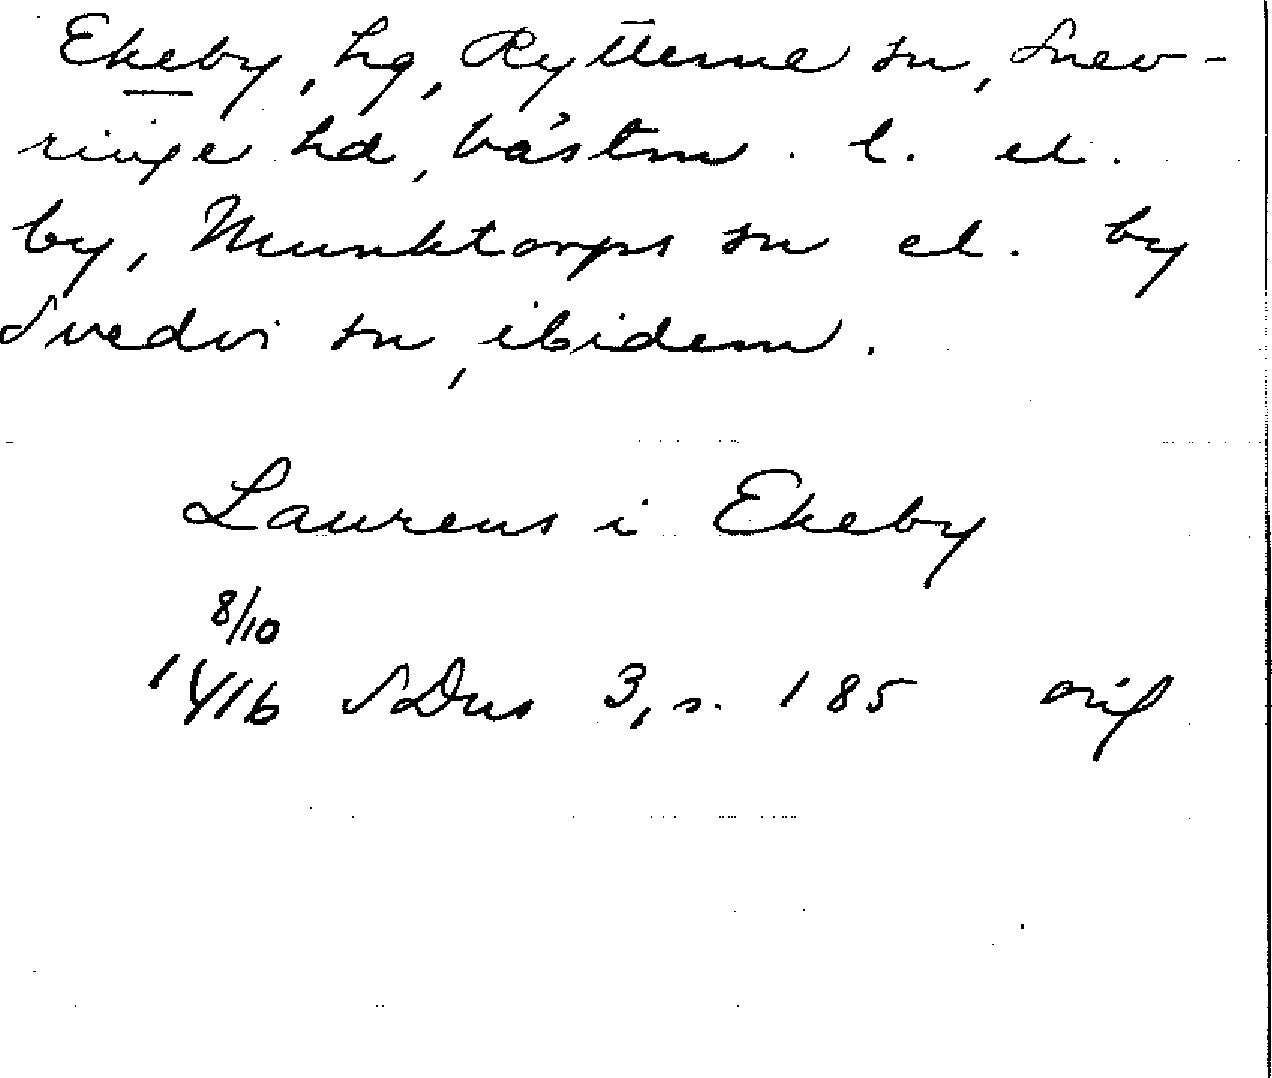 Ekeby, hg, Rytterne sn, Snev-
ringe hd, Västm. l. el.
by, Munktorps sn el. by
Svedvi sn, ibidem.
Laurens i Ekeby
8/10
1416 SDns 3, s. 185 orig